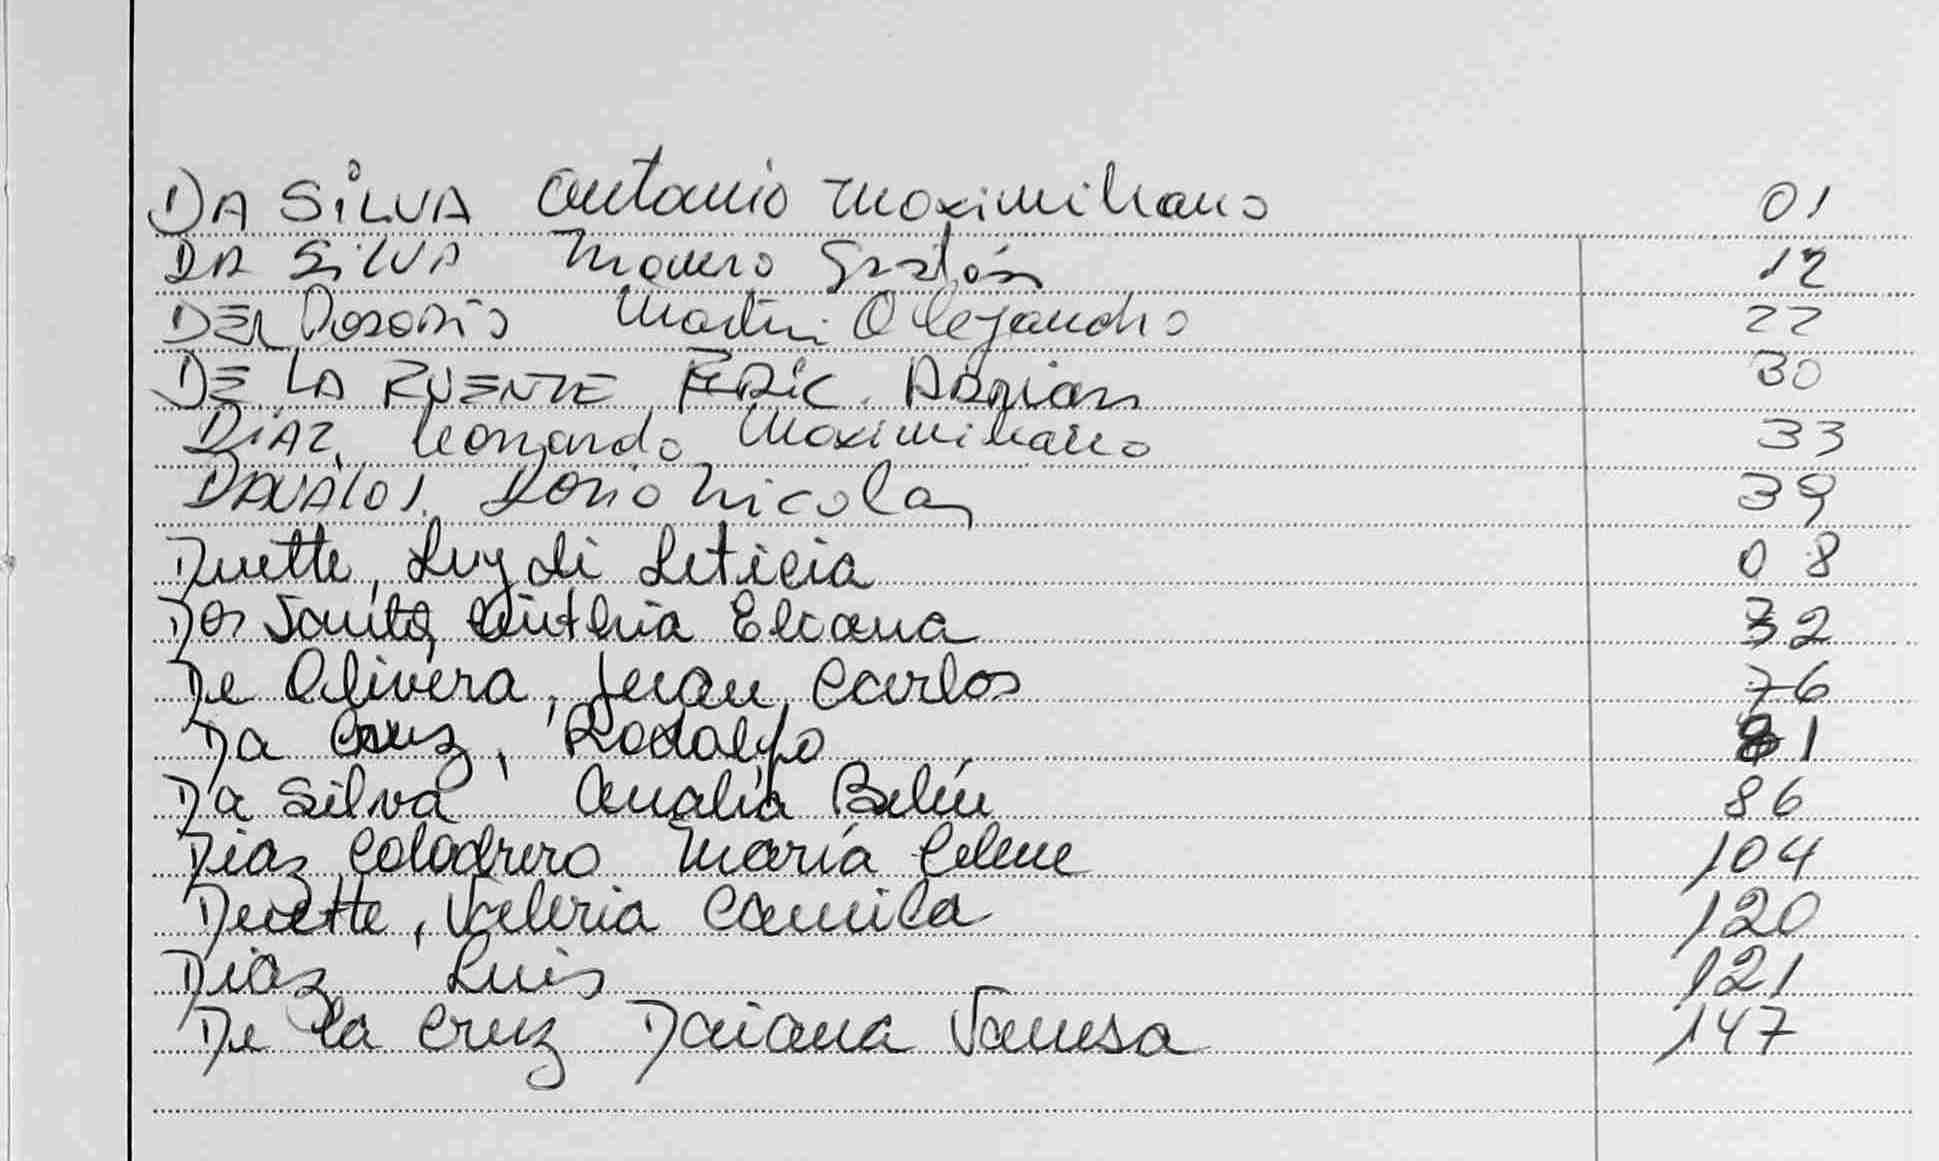 DA SILVA Antonio Maximiliano 01
DA SILVA Mauro Gastón 12
DEL Martin Alejandro 22
DE LA FUENTE ERIC Adrian 30
DIAZ, Leonardo Maximiliano 33
DAVALOS. Dario Nicolas 39
Duette, Luz di Leticia 08
Dos Santos, Cinthia Eliana 32
De Olivera, Juan Carlos 76
Da Cruz, Rodolfo 81
Da Silva Analía Belén 86
Diaz Coladrero María Celene 104
Duette, Valeria Camila 120
Diaz Luis 121
De la Cruz Daiana Vanesa 147